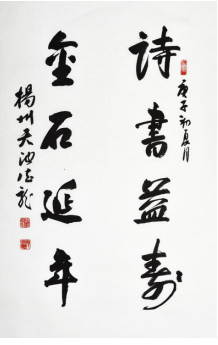 詩書益壽
金石延年
庚子初夏月
楊州天池法龍